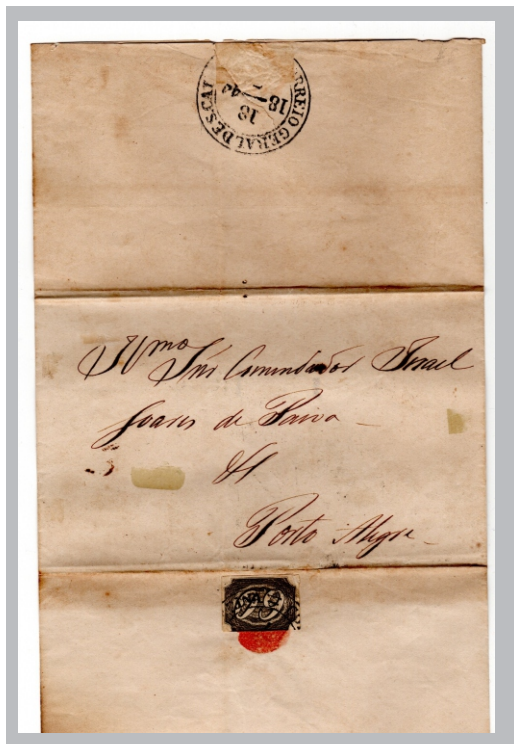 CORREIO GERAL DE S. CAT
18
18
Illmo Snr Comendador Israel
Soares de Paiva
Porto Alegre